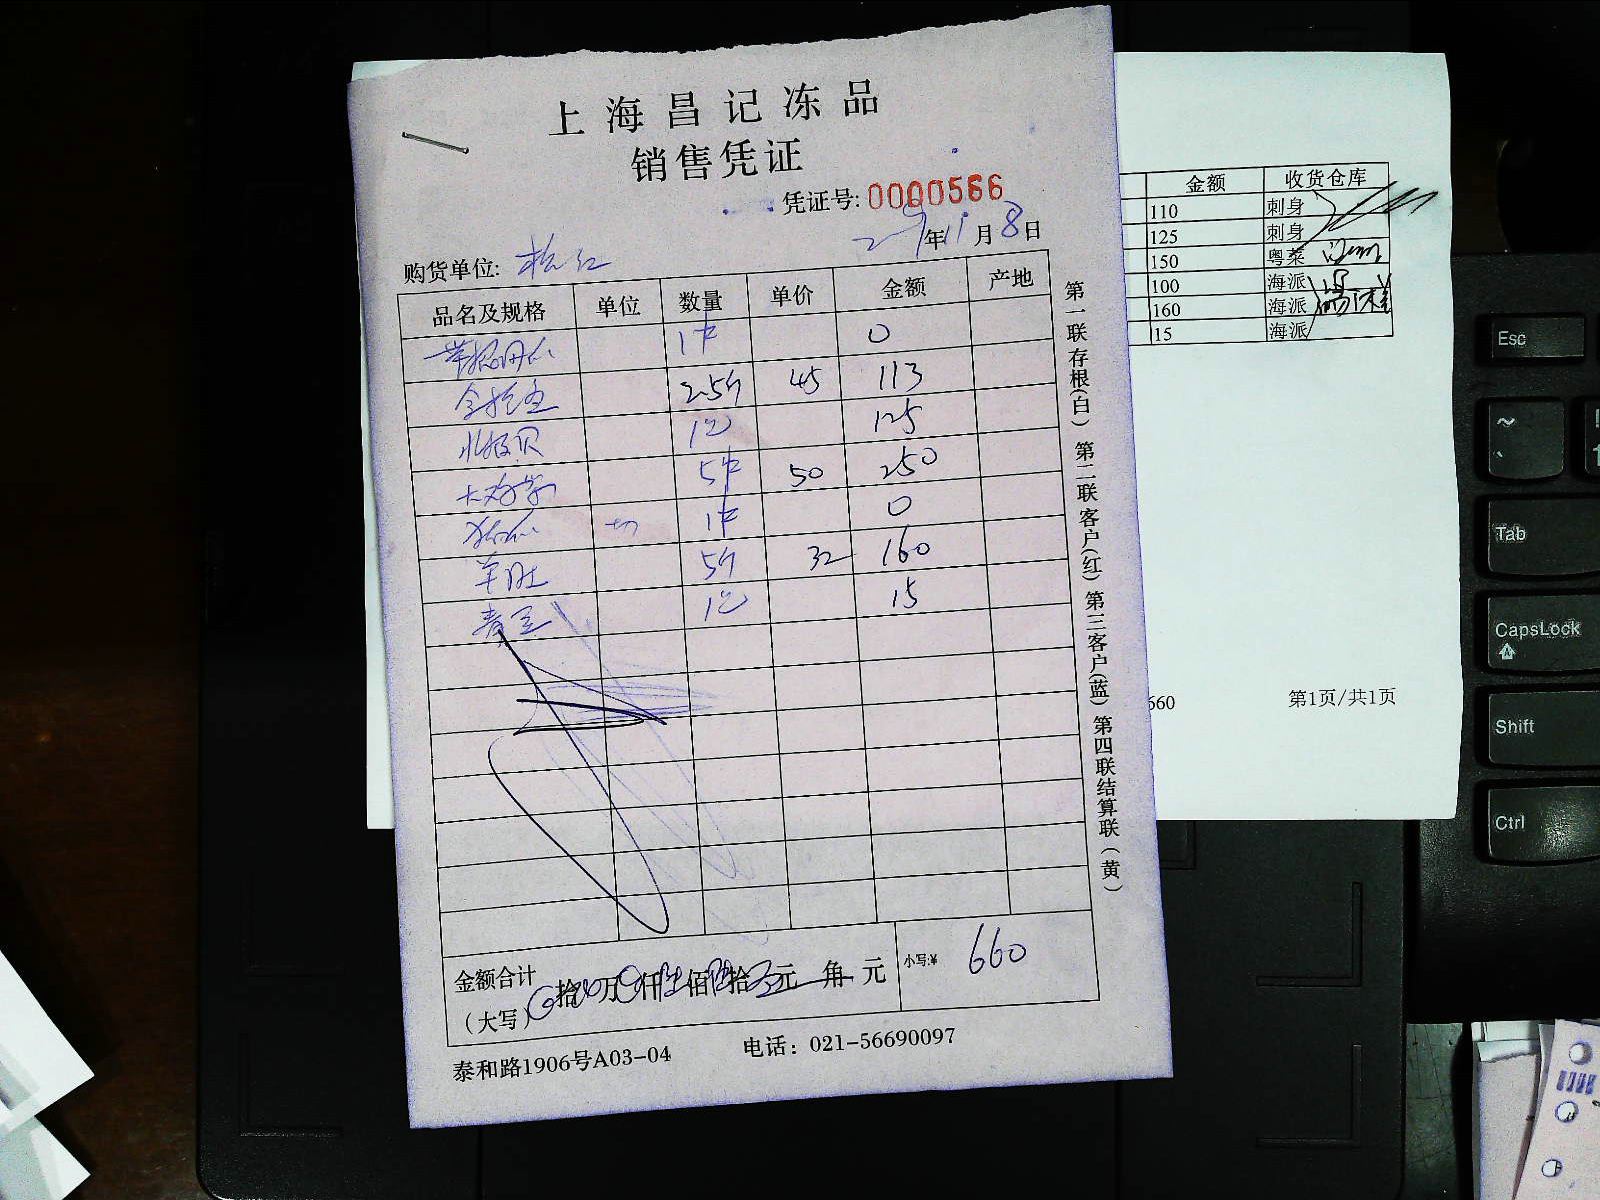 上海昌记冻品
销售凭证
凭证号: 0000566
年 11 月 8 日
购货单位:
品名及规格 单位 数量 单价 金额 产地
1件 0
2.5斤 45 113
北极贝 1包 125
5件 50 250
1件 0
羊肚 5斤 32 160
青豆 1包 15
金额合计
（大写） 拾 万 仟 佰 拾 元 角 元
小写:¥ 660
泰和路1906号A03-04 电话：021-56690097
第一联存根(白) 第二联客户(红) 第三客户(蓝) 第四联结算联（黄）
金额 收货仓库
110 刺身
125 刺身
150 粤菜
100 海派
160 海派
15 海派
660 第1页/共1页
Esc
~
Tab
CapsLock
Shift
Ctrl